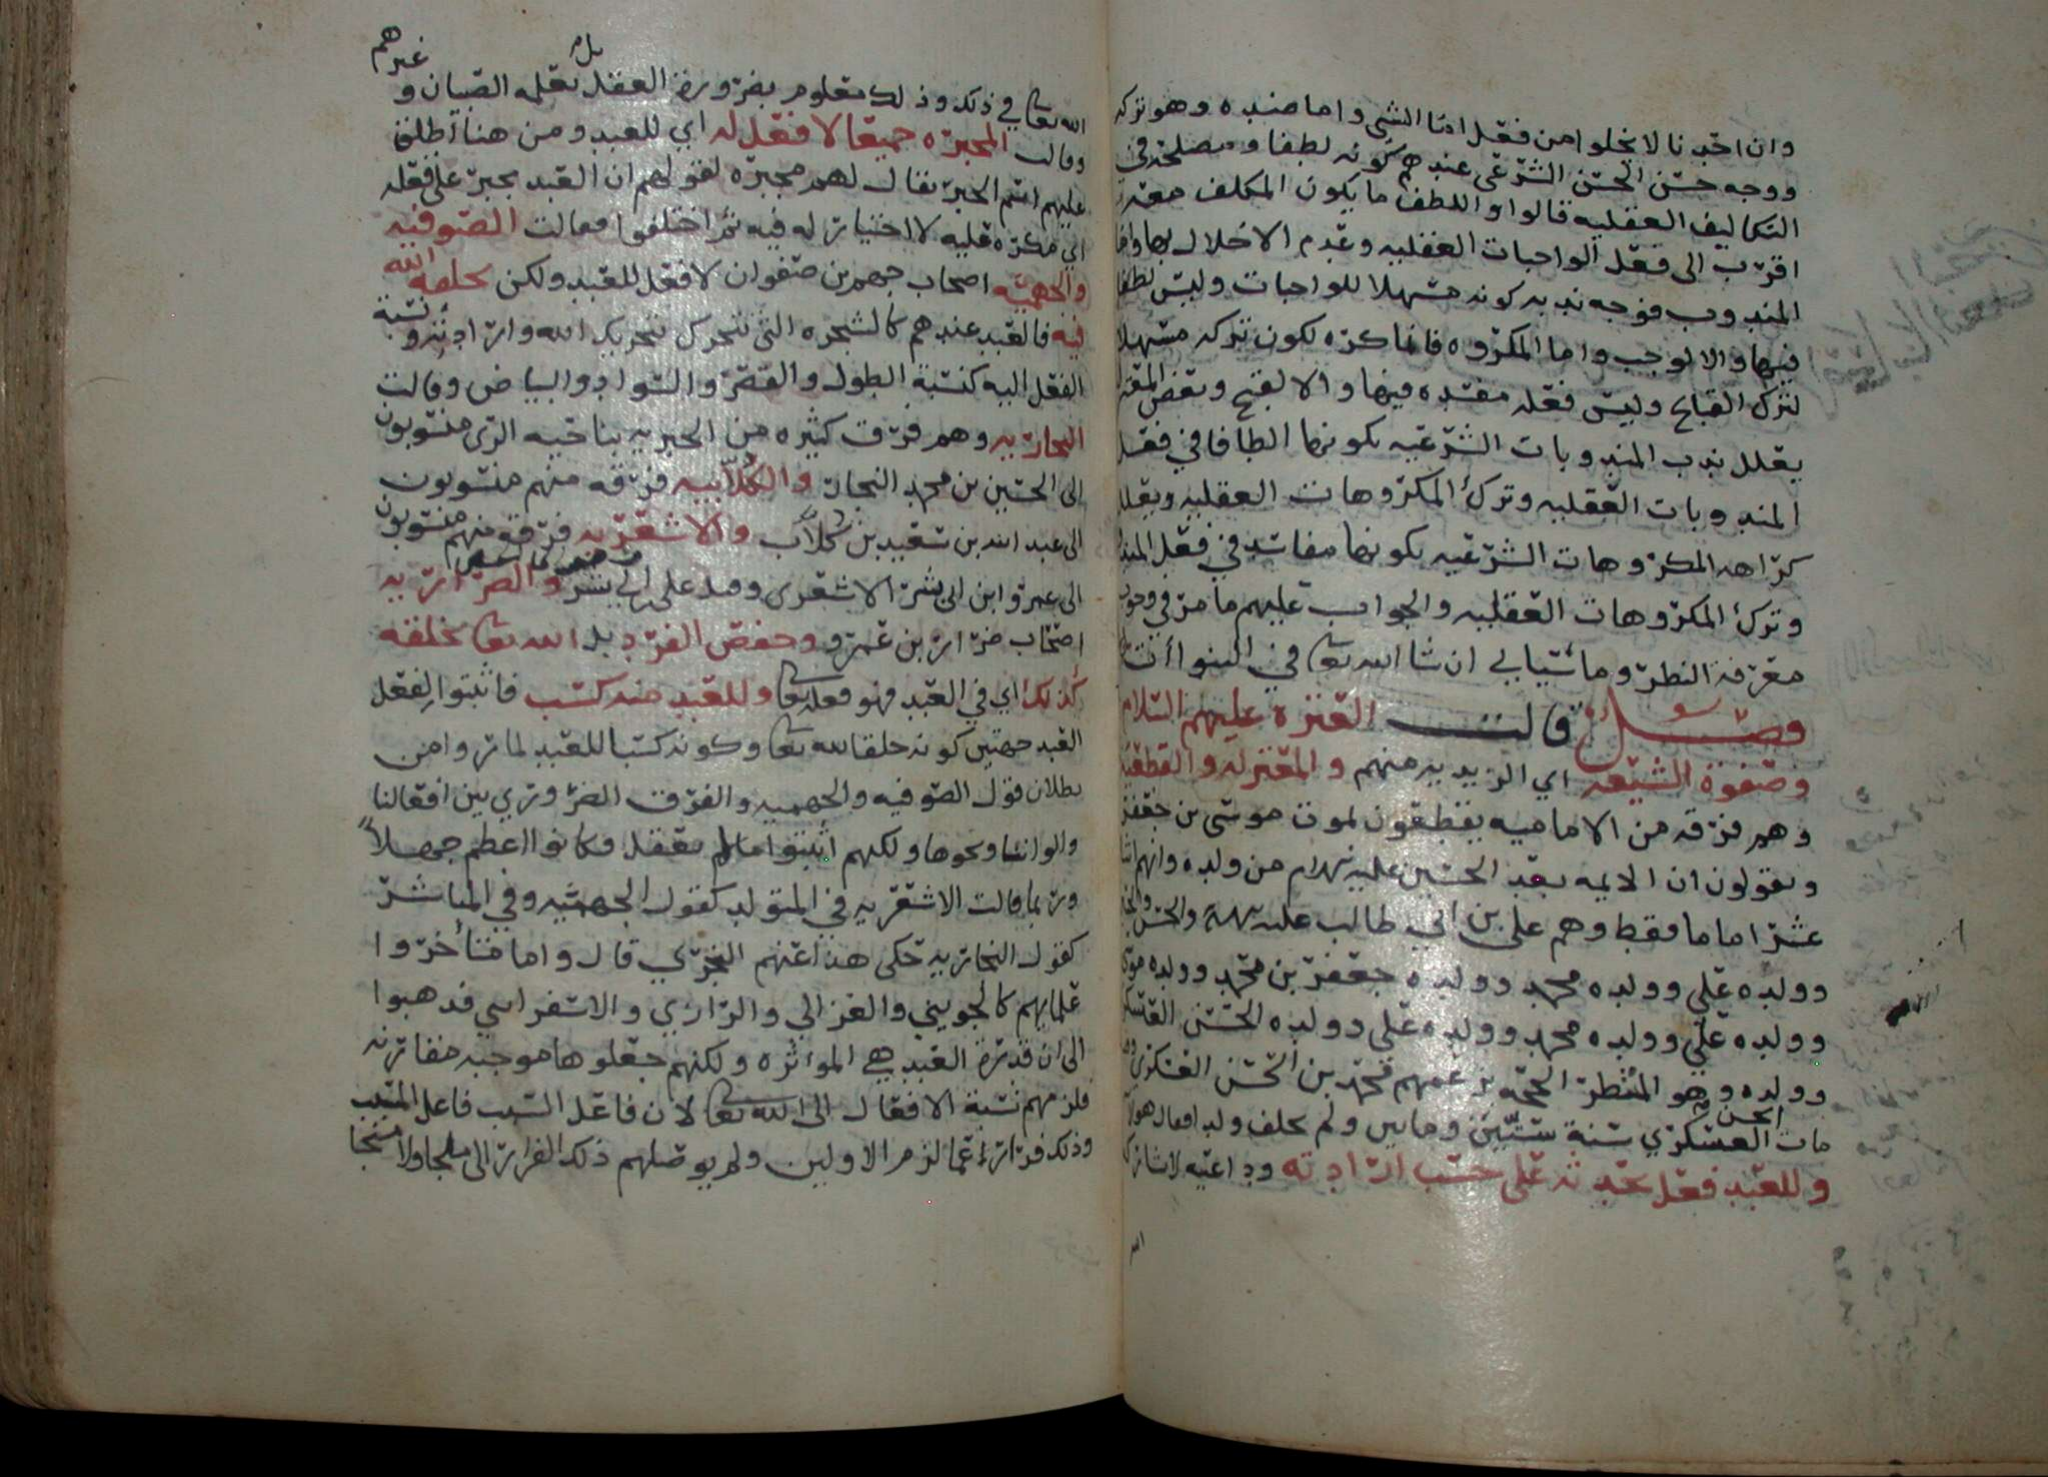 وان احد نا لا يخلوا من فعل اما الشي واما ضده وهو تركه
ووجه حسن الحسن الشرعي عندهم كونه لطفا ومصلحة في
التكاليف العقليه قالوا واللطف ما يكون المكلف معه
اقرب الى فعل الواجبات العقليه وعدم الاخلال بها واما
المندوب فوجه ندبه كونه مسهلا للواجبات وليس لطفا
فيها والا لوجب واما المكروه فانما كره لكون تركه مسهلا
لترك القبايح وليس فعله مفسده فيها والا لقبح وبعض المعتزله
يعلل ندب المندوبات الشرعيه بكونها الطافا في فعل
المندوبات العقليه وترك المكروهات العقليه ويعلل
كراهه المكروهات الشرعيه بكونها مفاسد في فعل المند
وترك المكروهات العقليه والجواب عليهم ما مر في وجوب
معرفة النظر وما سياتي ان شا الله تعا في النبوات
فصل قالت العتره عليهم السلام
وصفوة الشيعه اي الزيديه منهم والمعتزله والقطعيه
وهم فرقه من الاماميه يقطعون لموت موسى بن جعفر
ويقولون ان الايمه بعد الحسين عليه السلام من ولده وانهم اثنا
عشر اماما فقط وهم علي بن ابي طالب عليه السلام والحسن والحسين
وولده علي وولده محمد وولده جعفر بن محمد وولده موسى
وولده علي وولده محمد وولده علي وولده الحسن العسكري
وولده وهو المنتظر الحجه بزعمهم محمد بن الحسن العسكري
مات الحسن العسكري سنة ستين ومايتين ولم يخلف ولد افعال هولا
وللعبد فعل يحدثه على حسب ارادته وداعيه لا شارك
الله
الله تعا في ذلك وذلك معلوم بضرورة العقل بل يعلمه الصبيان وغيرهم
وقالت المجبره جميعا لا فعل له اي للعبد ومن هنا اطلق
عليهم اسم الجبر يقال لهم مجبره لقولهم ان العبد مجبر على فعله
اي مكره عليه لا اختيار له فيه ثم اختلفوا فقالت الصوفيه
والجهميه اصحاب جهم بن صفوان لا فعل للعبد ولكن يخلقه الله
فيه فالعبد عندهم كالشجره التي تتحرك بتحريك الله وارادته ونسبة
الفعل اليه كنسبة الطول والقصر والسواد والبياض وقالت
النجاريه وهم فرق كثيره من الجبريه بناحيه الري منسوبون
الى الحسين بن محمد النجار والكلابيه فرقه منهم منسوبون
الى عبد الله بن سعيد بن كلاب والاشعريه فرقة منهم منسوبون
الى عمرو ابن ابي بشر الاشعرى وقيل علي بن ابي بشر والضراريه
اصحاب ضرار بن عمرو وحفص الفرد بل الله تعا يخلقه
كذلك اي في العبد فهو فعله تعا وللعبد منه كسب فاثبتوا لفعل
العبد جهتين كونه خلقا لله تعا وكونه كسبا للعبد لما راوا من
بطلان قول الصوفيه والجهميه والفرق الضروري بين افعالنا
والواننا ونحوها ولكنهم اثبتوا ما لم يعقل فكانوا اعظم جهلا
وربما قالت الاشعريه في المتولد كقول الجهميه وفي المباشر
كقول النجاريه حكى هذا عنهم النجري قال واما متاخروا
علمايهم كالجويني والغزالي والرازي والاسفرايني فذهبوا
الى ان قدرة العبد هي الموثره ولكنهم جعلوها موجبه مقارنه
فلزمهم نسبة الافعال الى الله تعا لان فاعل السبب فاعل المسبب
وذلك فرار عما لزم الاولين ولم يوصلهم ذلك الفرار الى ملجا ولا منجا